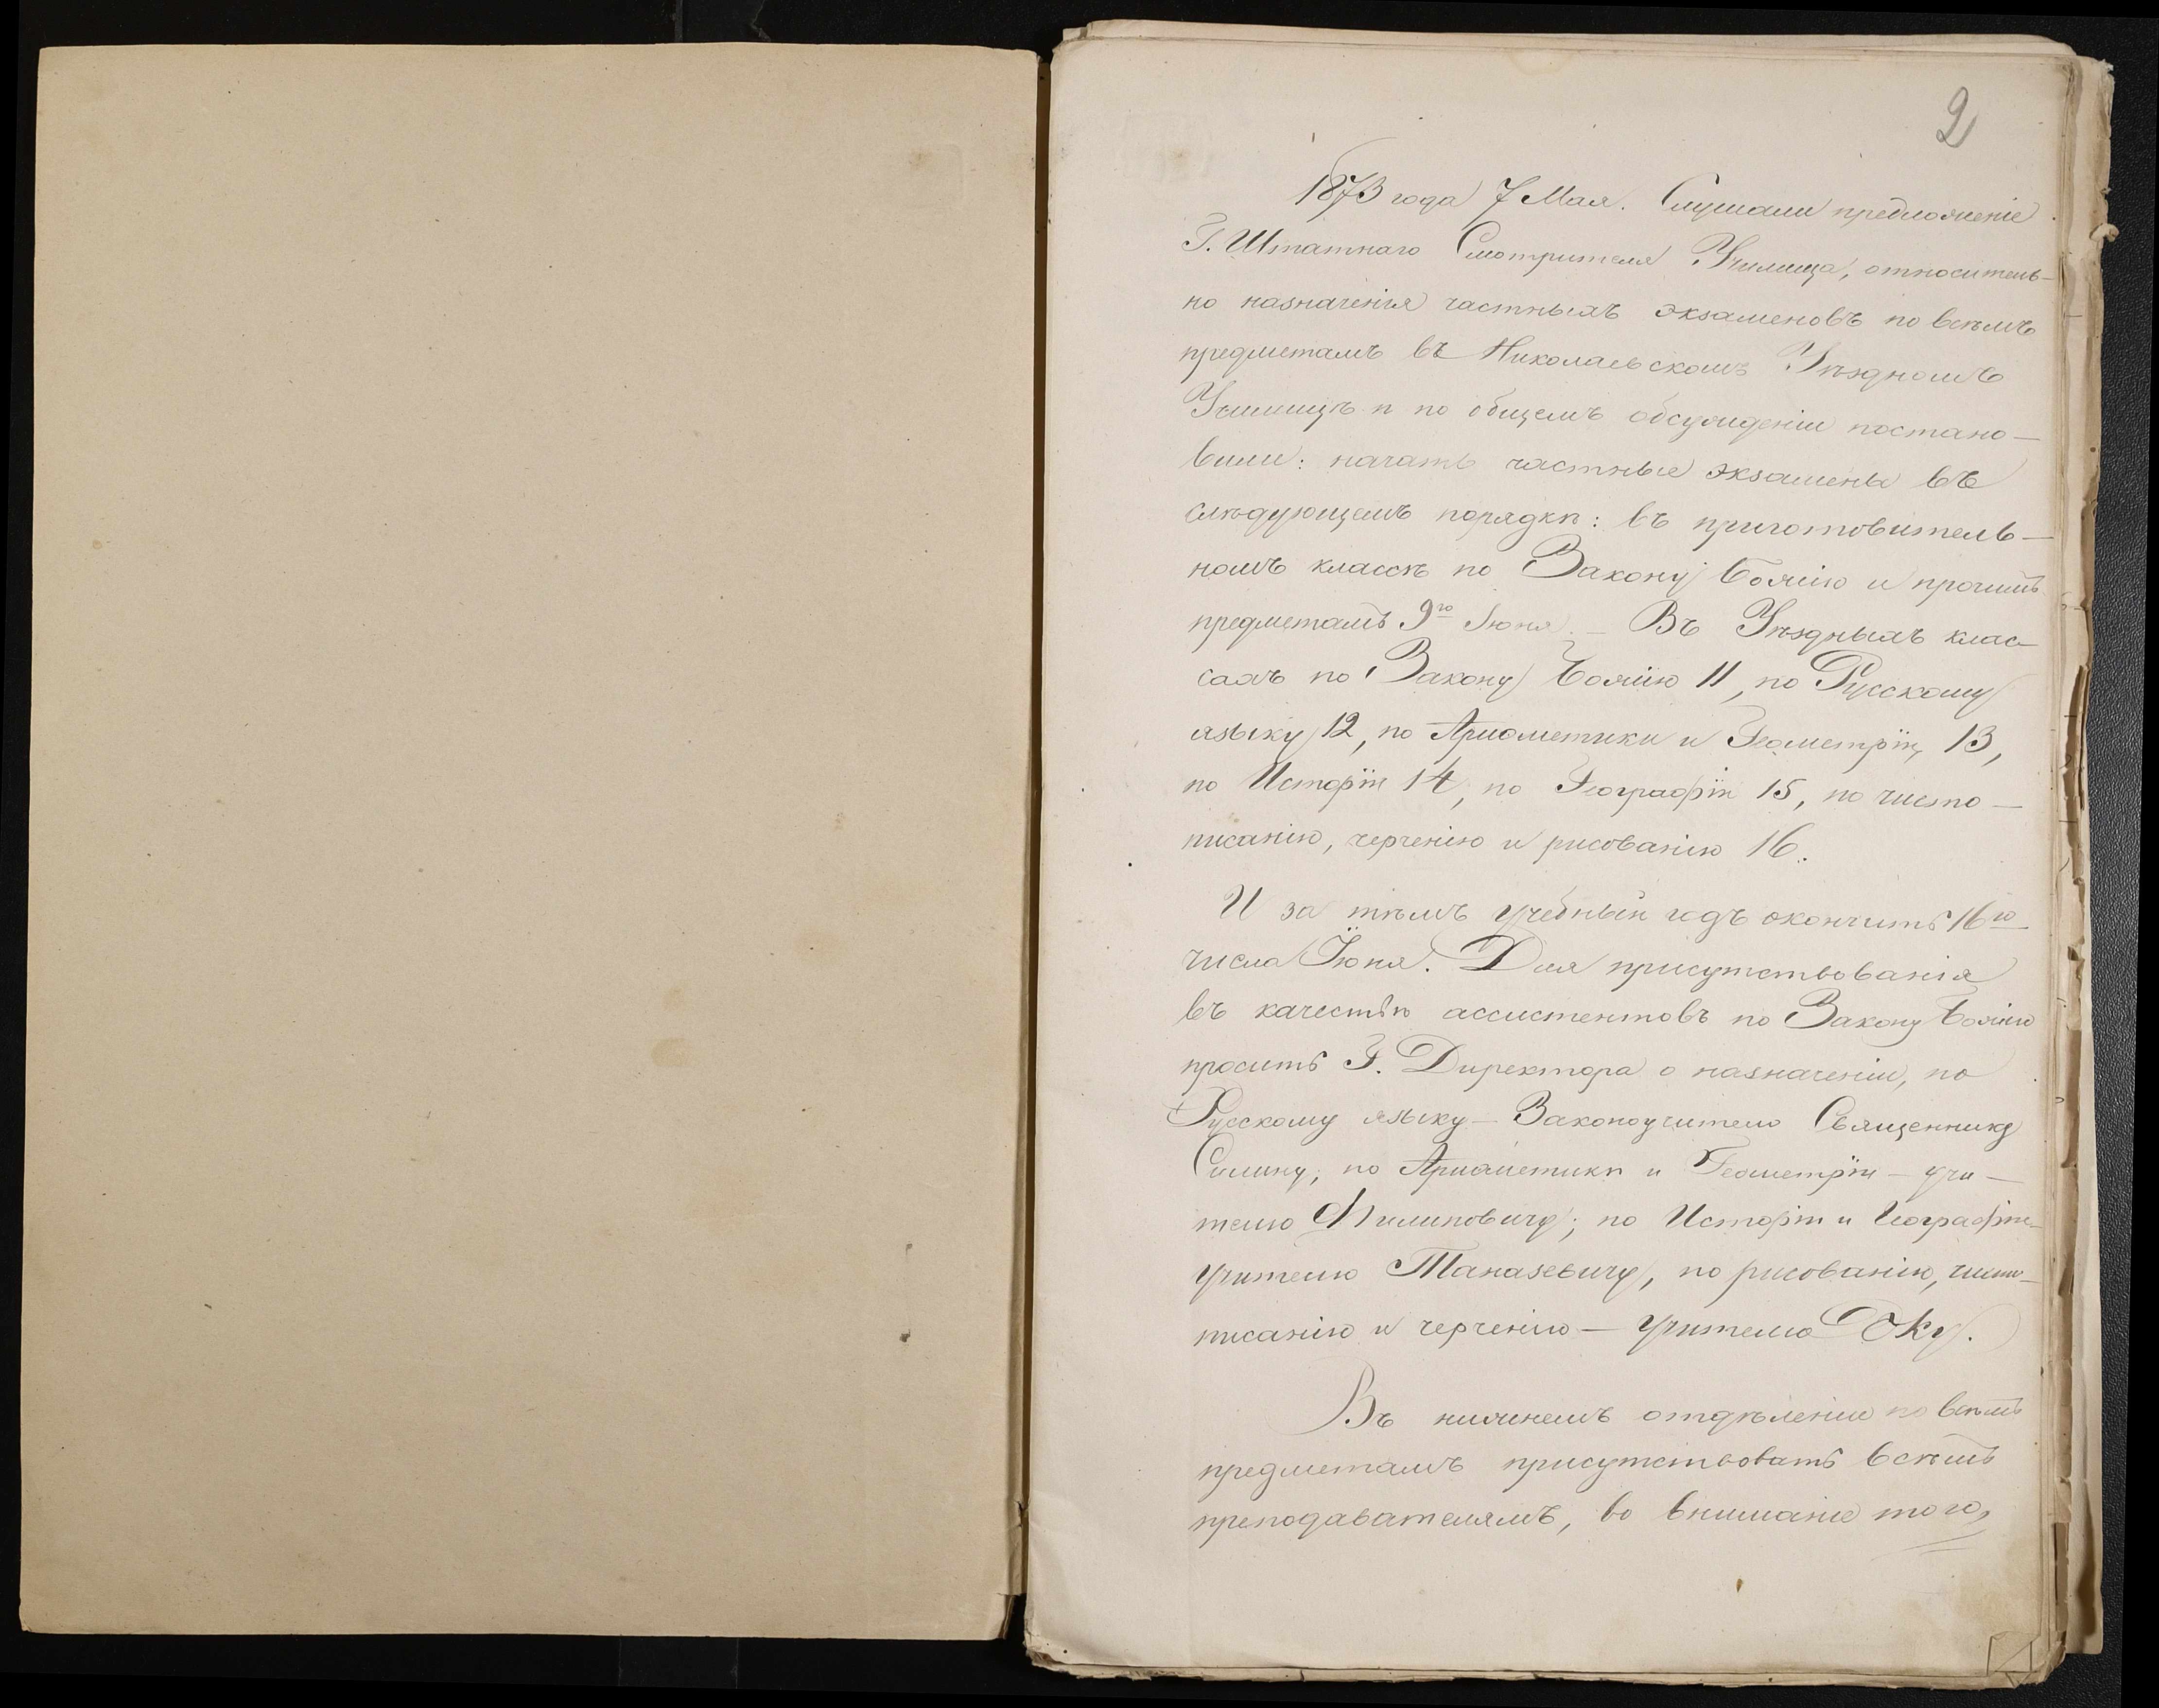 2
1873 года 7 Мая. Слушали предложеніе
Г. Штатнаго Смотрителя Училища, относитель-
но назначенія частныхъ экзаменовъ по всѣмъ
предметамъ въ Николаевскомъ Уѣздномъ
Училищѣ и по общемъ обсужденіи постано-
вили: начать частные экзамены въ
слѣдующемъ порядкѣ: въ приготовитель-
номъ классѣ по Закону Божію и прочимъ
предметамъ 9го Іюня. – Въ Уѣздныхъ клас-
сахъ по Закону Божію 11, по Русскому
языку 12, по Ариѳметики и Геометріи, 13,
по Исторіи 14, по Географіи 15, по чисто-
писанію, черченію и рисованію 16.
И за тѣмъ учебный годъ окончить 16го
числа Іюня. Для присутствованія
въ качествѣ ассистентовъ по Закону Божію
просить Г. Директора о назначеніи, по
Русскому языку – Законоучителю Священнику
по Ариѳметикѣ и Геометріи – учи-
телю Филиповичу; по Исторіи и Географіи-
учителю Таназевичу, по рисованію, чисто-
писанію и черченію – учителю Оку.
Въ нижнемъ отдѣленіи по всѣмъ
предметамъ присутствовать всѣмъ
преподавателямъ, во вниманіе того,